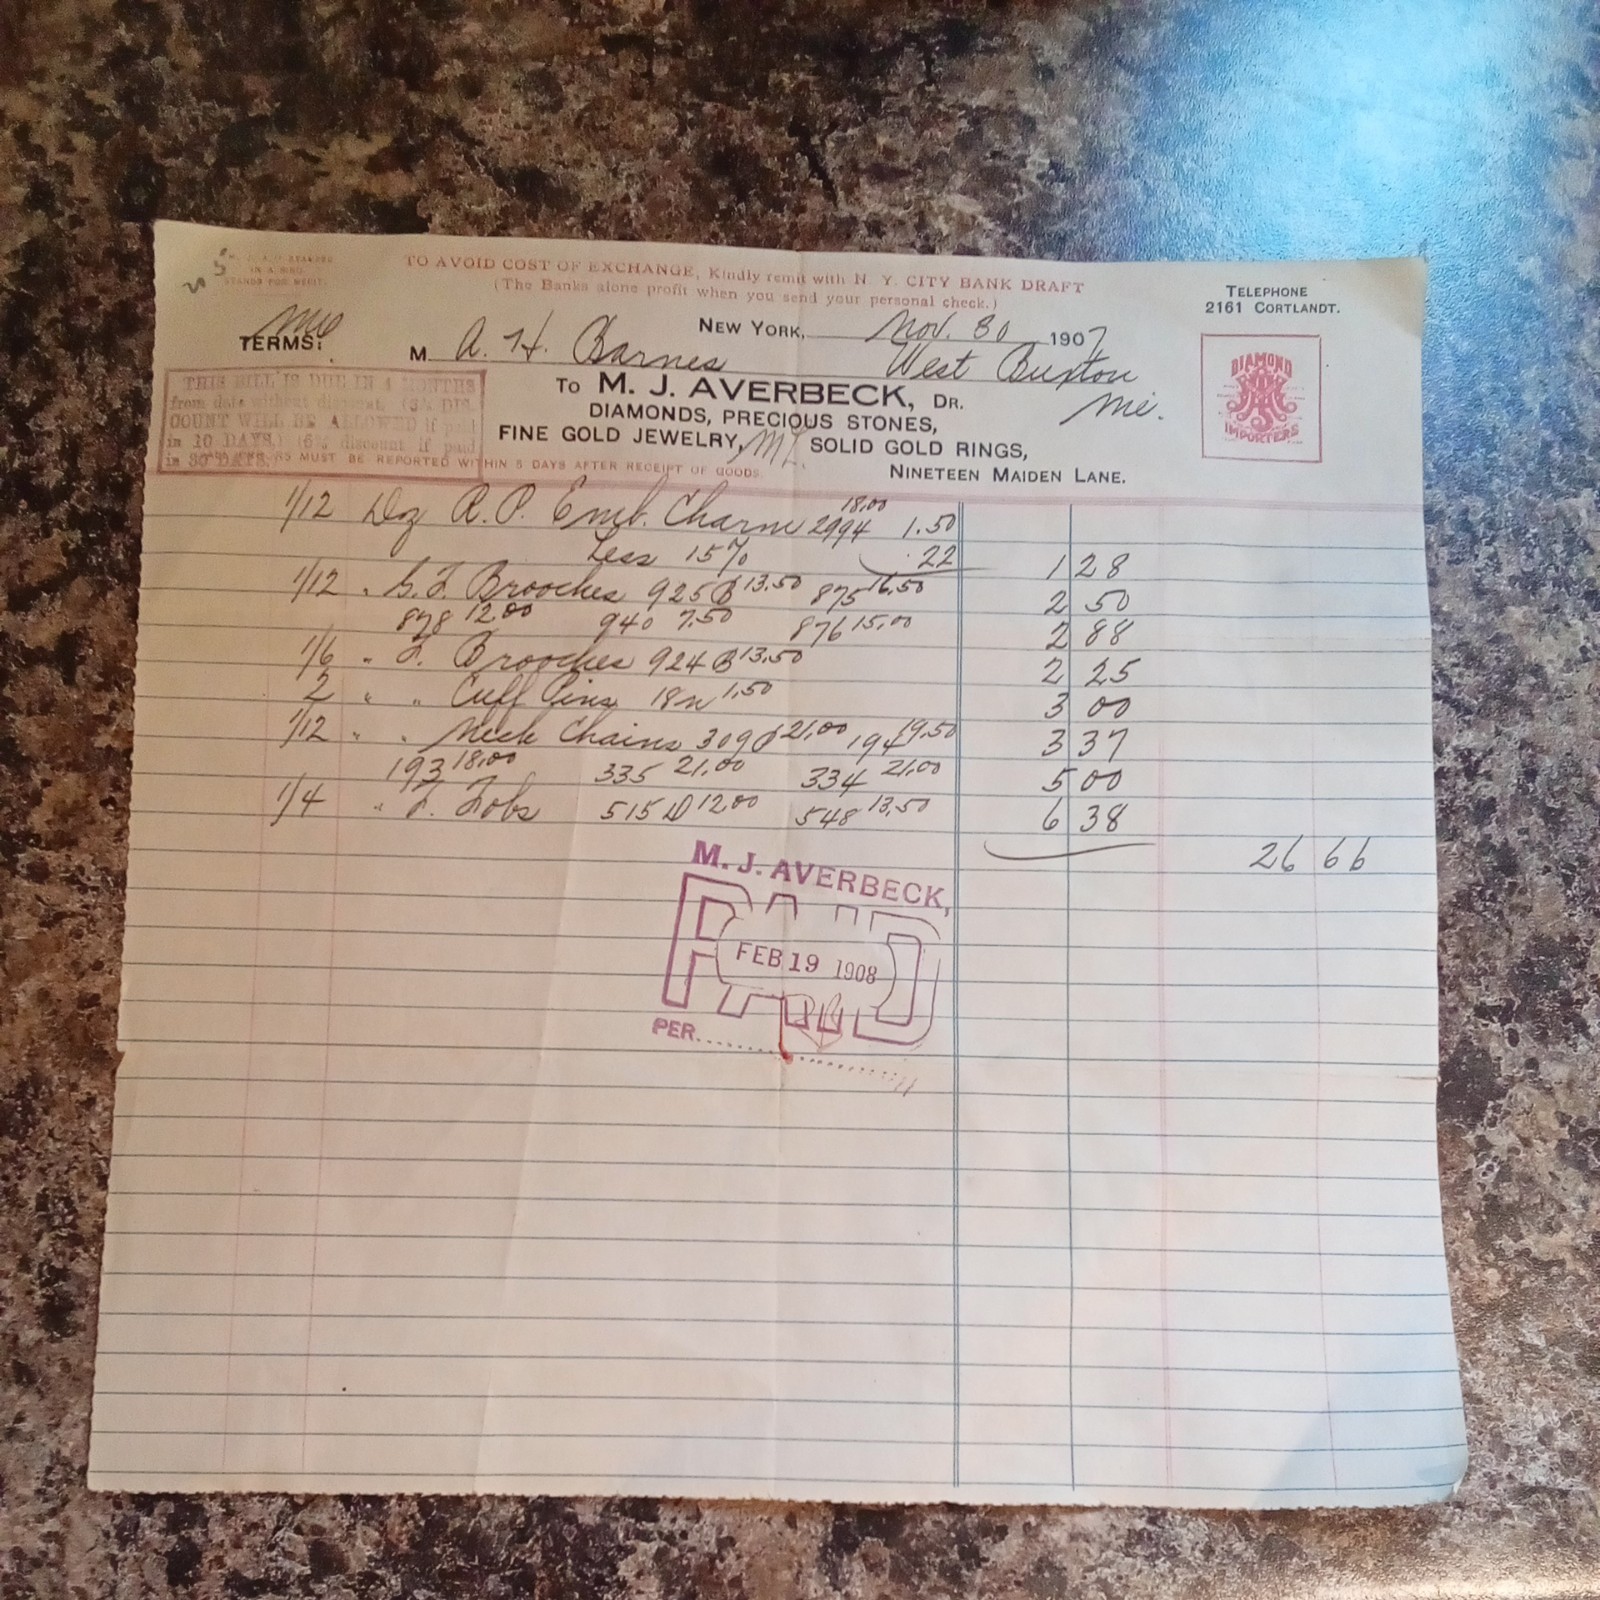 IN A RING
STANDS FOR MERIT.
TO AVOID COST OF EXCHANGE, Kindly remit with N. Y. CITY BANK DRAFT
(The Banks alone profit when you send your personal check.)
TELEPHONE
2161 CORTLANDT.
NEW YORK, Nov. 30 1907
TERMS:
M A. H. Barnes West Buxton
Me.
TO M. J. AVERBECK, DR.
DIAMONDS, PRECIOUS STONES,
FINE GOLD JEWELRY, SOLID GOLD RINGS,
NINETEEN MAIDEN LANE.
DIAMOND
IMPORTERS
THIS BILL IS DUE IN 4 MONTHS
from date without discount. (3% DIS-
COUNT WILL BE ALLOWED if paid
in 10 DAYS.) (6% discount if paid
in 30 DAYS.
MUST BE REPORTED WITHIN 5 DAYS AFTER RECEIPT OF GOODS.
1/12 Dz R.P. Emb. Charm 2994 18.00 1.50
Less 15% .22 1 28
1/12 " G.F. Brooches 925B 13.50 875 16.50 2 50
878 12.00 940 7.50 876 15.00 2 88
1/6 " F. Brooches 924B 13.50 2 25
2 " " Cuff Pins 18n 1.50 3 00
1/12 " " Neck Chains 309 21.00 194 19.50 3 37
193 18.00 335 21.00 334 21.00 5 00
1/4 " F. Fobs 515D 12.00 548 13.50 6 38
26 66
M. J. AVERBECK,
PAID
FEB 19 1908
PER